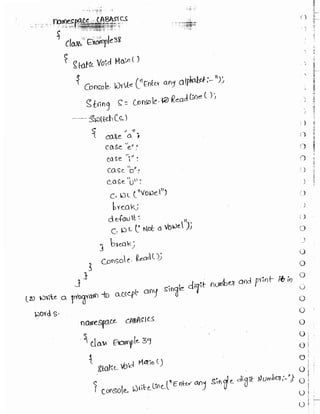 namespace CABASICS
{
class Example38
{
Static Void Main()
{
Console.Write("Enter any alphabet:-");
String S = Console.ReadLine();
Switch(s)
{
case "a":
case "e":
case "i":
case "o":
case "u":
C.WL("Vowel")
break;
default:
C.WL("Not a Vowel");
break;
}
Console.Read();
}
}
}
(2) Write a program to accept any single digit number and print it in
words.
namespace CABASICS
{
class Example 39
{
Static Void Main()
{
Console.WriteLine("Enter any Single digit Number:-");